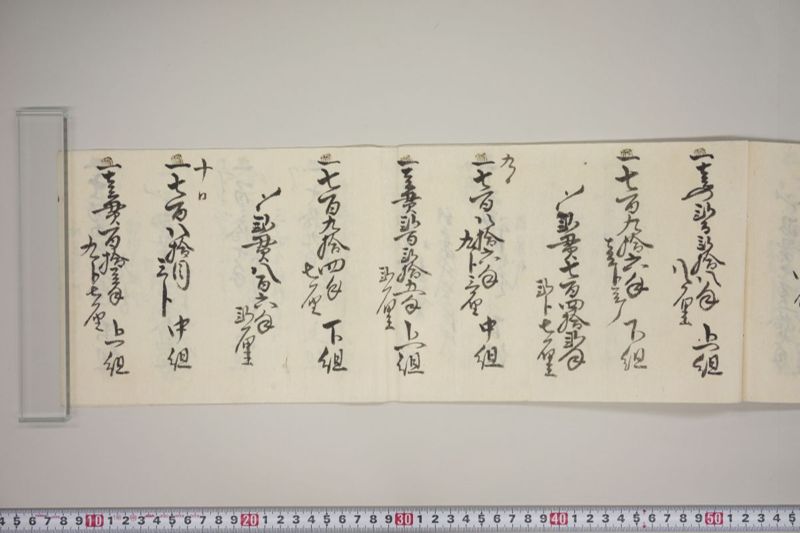 一壱〆弐百弐拾八匁八厘 上組
一七百九拾六匁壱分三厘 下組
〆弐貫七百四拾弐匁弐分七厘
九日
一七百八拾六匁九分三厘 中組
一壱貫弐百弐拾五匁弐厘 上組
一七百九拾四匁七厘 下組
〆弐貫八百六匁弐厘
十日
一七百八拾目三分 中組
一壱貫百拾匁九分七厘 上組
4 5 6 7 8 9 10 1 2 3 4 5 6 7 8 9 20 1 2 3 4 5 6 7 8 9 30 1 2 3 4 5 6 7 8 9 40 1 2 3 4 5 6 7 8 9 50 1 2 3 4 5